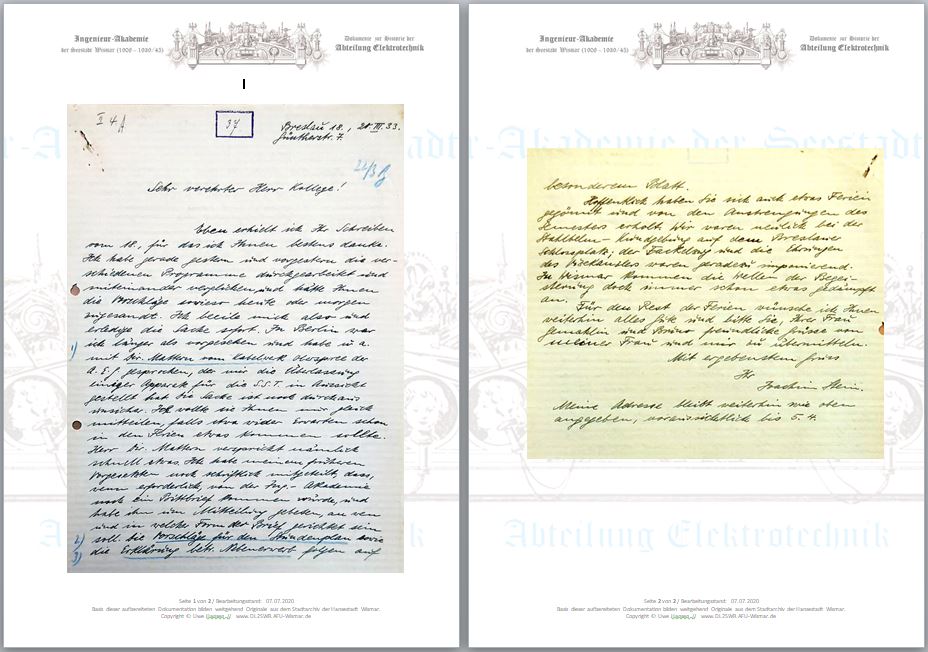 Ingenieur-Akademie
der Seestadt Wismar (1908 – 1939/45)
Dokumente zur Historie der
Abteilung Elektrotechnik
I
II 4 A
37
Breslau 18., 20. III. 33.
Güntherstr. 7.
24/3
Sehr verehrter Herr Kollege!
Eben erhielt ich Ihr Schreiben
vom 18. für das ich Ihnen bestens danke.
Ich habe gerade gestern und vorgestern die ver-
schiedenen Programme durchgearbeitet und
miteinander verglichen und hätte Ihnen
die Vorschläge sowieso heute oder morgen
zugesandt. Ich beeile mich also und
erledige die Sache sofort. In Berlin war
ich länger als vorgesehen und habe u. a.
1) mit Dir. Mattern vom Kabelwerk Oberspree der
A.E.G. gesprochen, der mir die Überlassung
einiger Apparate für die S.S.T. in Aussicht
gestellt hat. Die Sache ist noch durchaus
unsicher. Ich wollte sie Ihnen nur gleich
mitteilen, falls etwa wider Erwarten schon
in den Ferien etwas kommen sollte.
Herr Dir. Mattern verspricht nämlich
schnell etwas. Ich habe meinem früheren
Vorgesetzten noch schriftlich mitgeteilt, dass,
wenn erforderlich, von der Ing.-Akademie
noch ein Bittbrief kommen würde, und
habe ihn um Mitteilung gebeten, an wen
und in welcher Form der Brief gerichtet sein
2) soll. Die Vorschläge für den Stundenplan sowie
3) die Erklärung betr. Nebenerwerb folgen auf
Seite 1 von 2 / Bearbeitungsstand: 07.07.2020
Basis dieser aufbereiteten Dokumentation bilden weitgehend Originale aus dem Stadtarchiv der Hansestadt Wismar.
Copyright © Uwe www.DL2SWR.AFU-Wismar.de
Ingenieur-Akademie
der Seestadt Wismar (1908 – 1939/45)
Dokumente zur Historie der
Abteilung Elektrotechnik
besonderem Blatt.
Hoffentlich haben Sie sich auch etwas Ferien
gegönnt und von den Anstrengungen des
Semesters erholt. Wir waren neulich bei der
Stahlhelm-Kundgebung auf dem Breslauer
Schlossplatz; der Fackelzug und die Ehrungen
des Vizekanzlers waren geradezu imponierend.
In Wismar kommen die Wellen der Begei-
sterung doch immer schon etwas gedämpft
an.
Für den Rest der Ferien wünsche ich Ihnen
weiterhin alles Gute und bitte Sie, Ihre Frau
Gemahlin und Bruno freundliche Grüsse von
meiner Frau und mir zu übermitteln.
Mit ergebenstem Gruss
Ihr
Joachim Stein.
Meine Adresse bleibt weiterhin wie oben
angegeben, voraussichtlich bis 5. 4.
Abteilung Elektrotechnik
Abteilung Elektrotechnik
Seite 2 von 2 / Bearbeitungsstand: 07.07.2020
Basis dieser aufbereiteten Dokumentation bilden weitgehend Originale aus dem Stadtarchiv der Hansestadt Wismar.
Copyright © Uwe www.DL2SWR.AFU-Wismar.de